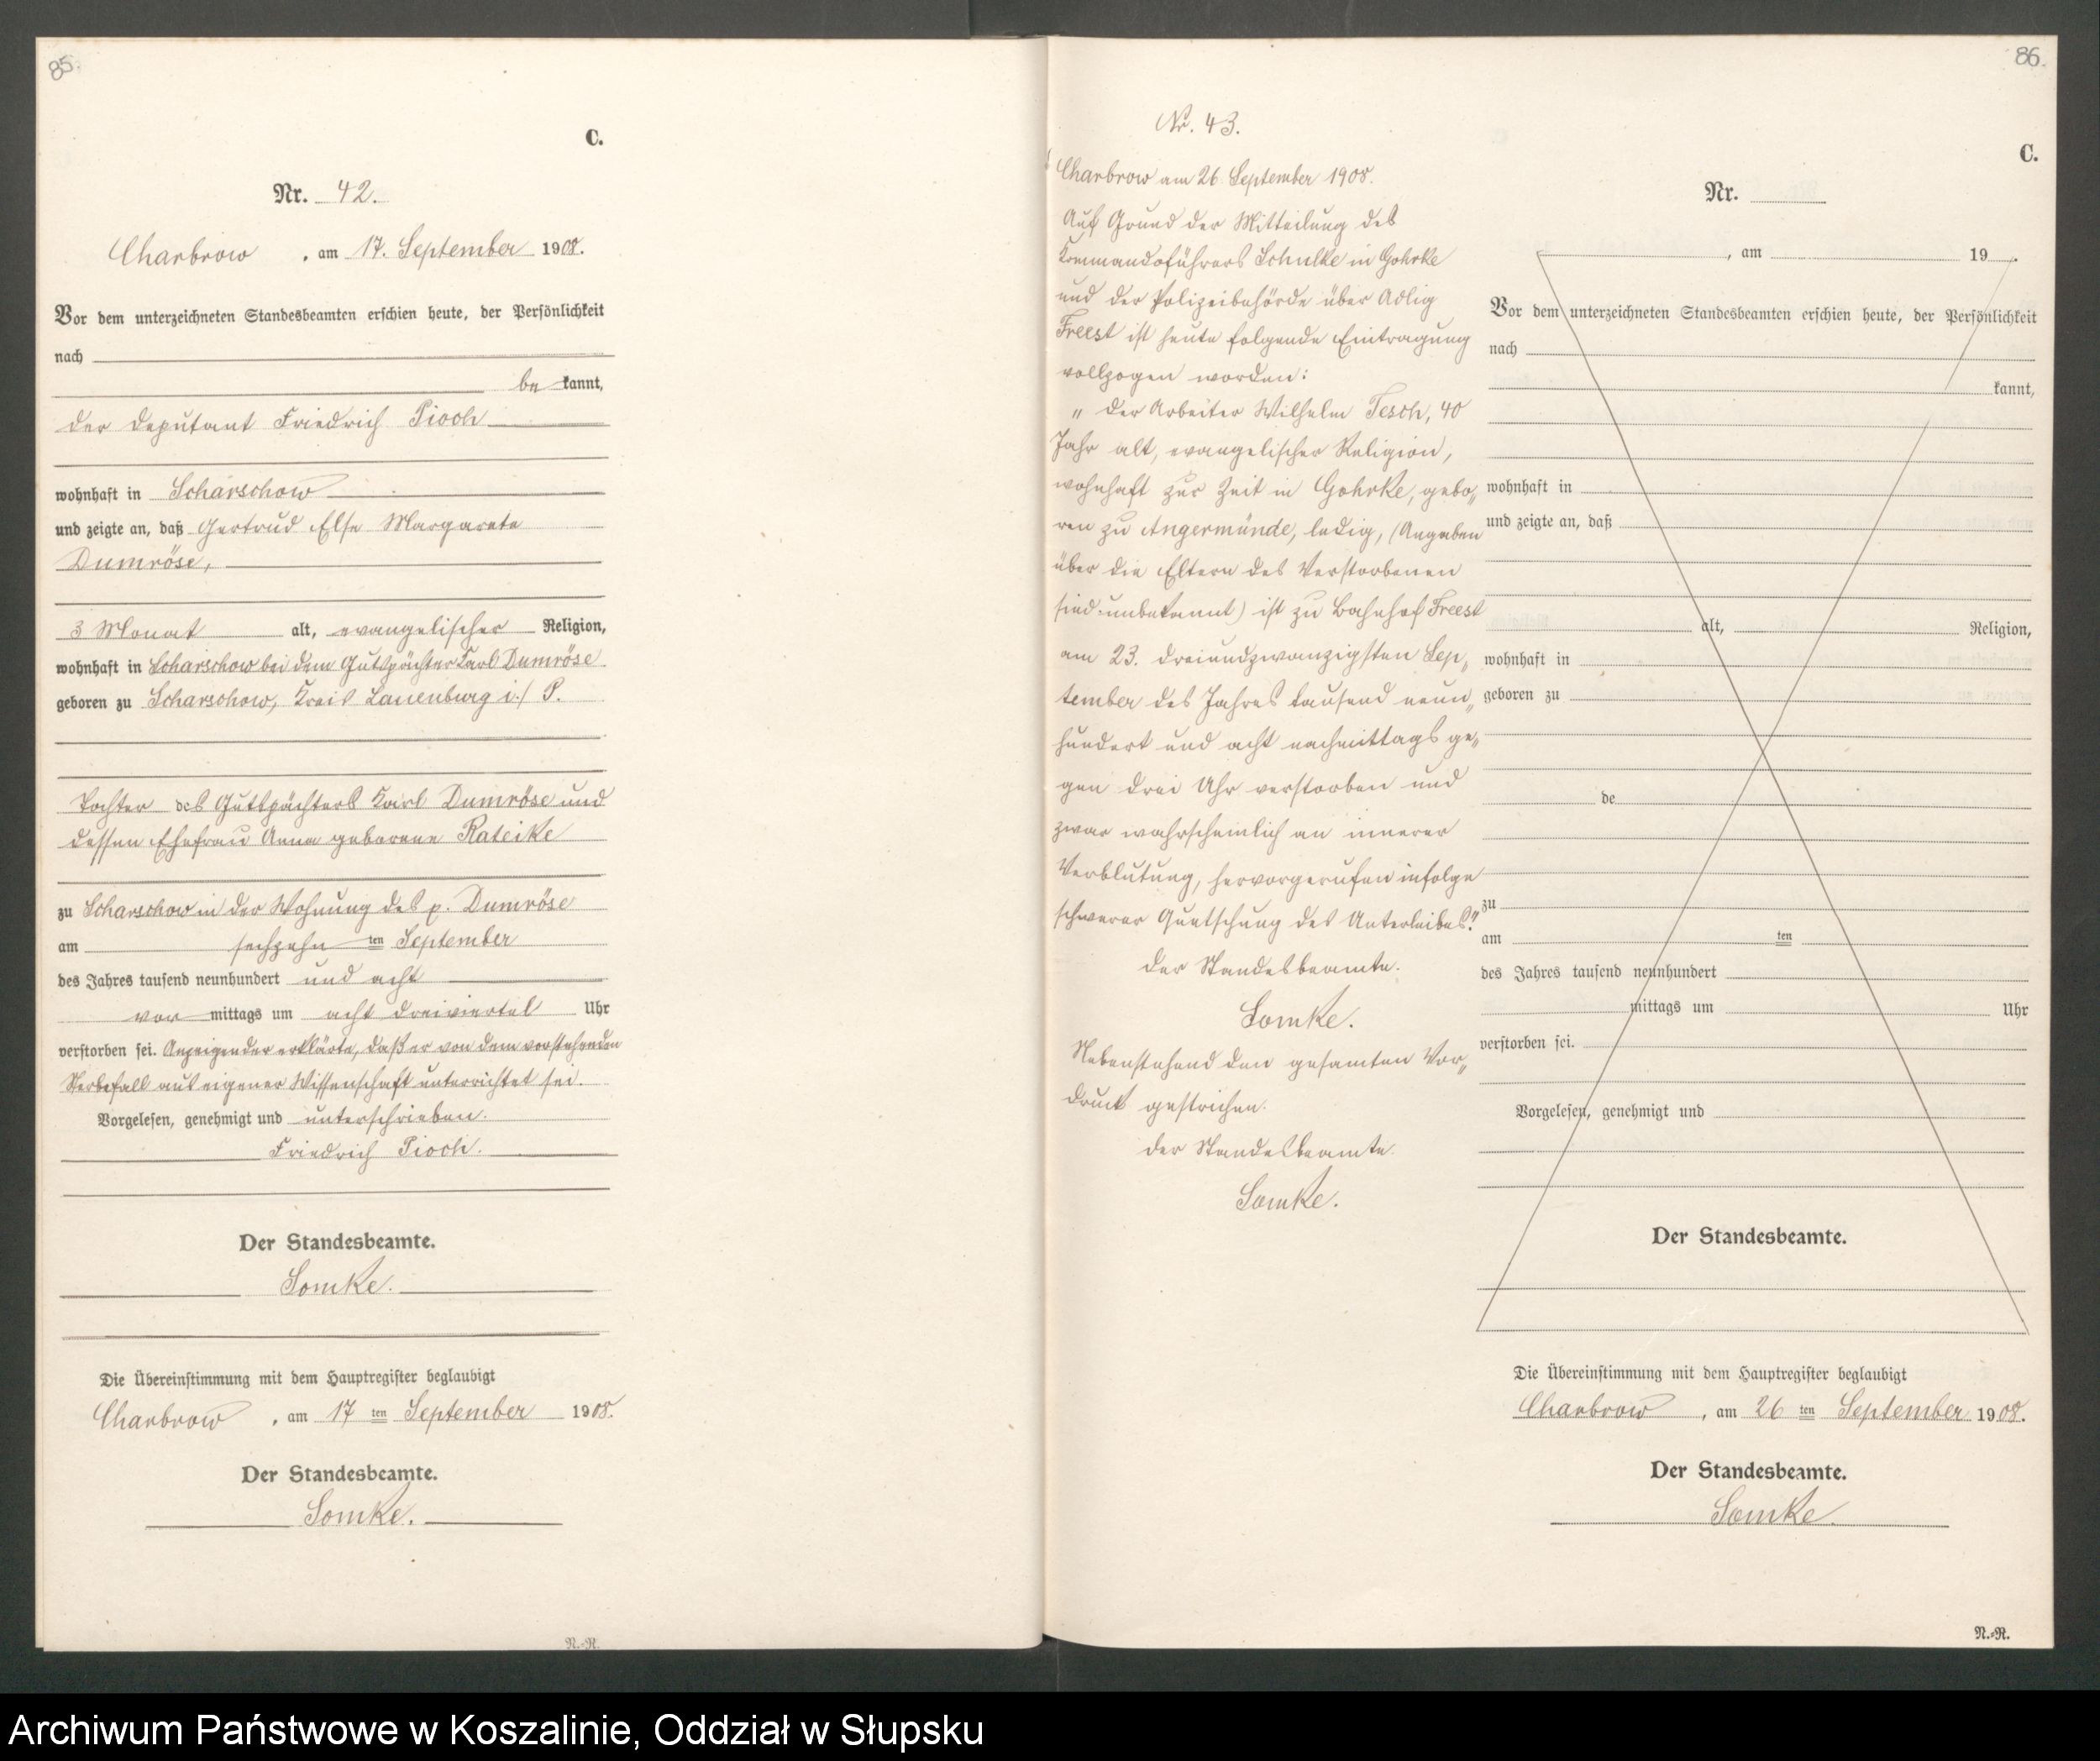 85.
C.
Nr. 42.
Charbrow, am 17. September 1908.
Vor dem unterzeichneten Standesbeamten erschien heute, der Persönlichkeit
nach
be kannt,
der Deputant Friedrich Pioch
wohnhaft in Scharschow
und zeigte an, daß Gertrud Else Margarete
Dumröse,
3 Monat alt, evangelischer Religion,
wohnhaft in Scharschow bei dem Gutspächter Karl Dumröse
geboren zu Scharschow, Kreis Lauenburg i./P.
Tochter des Gutspächters Karl Dumröse und
dessen Ehefrau Anna geborene Rateike
zu Scharschow in der Wohnung des p. Dumröse
am sechzehn ten September
des Jahres tausend neunhundert und acht
vor mittags um acht dreiviertel Uhr
verstorben sei. Anzeigender erklärte, daß er von dem vorstehenden
Sterbefall aus eigener Wissenschaft unterrichtet sei.
Vorgelesen, genehmigt und unterschrieben.
Friedrich Pioch.
Der Standesbeamte.
Somke.
Die Übereinstimmung mit dem Hauptregister beglaubigt
Charbrow, am 17 ten September 1908.
Der Standesbeamte.
Somke.
N.-R.
86.
Nr. 43.
Charbrow am 26 September 1908.
Auf Grund der Mitteilung des
Kommandoführers Schulke in Gohrke
und der Polizeibehörde über Adlig
Freest ist heute folgende Eintragung
vollzogen worden:
„ Der Arbeiter Wilhelm Tesch, 40
Jahr alt, evangelischer Religion,
wohnhaft zur Zeit in Gohrke, gebo„
ren zu Angermünde, ledig, (Angaben
über die Eltern des Verstorbenen
sind unbekannt) ist zu Bahnhof Freest
am 23. dreiundzwanzigsten Sep„
tember des Jahres tausend neun„
hundert und acht nachmittags ge„
gen drei Uhr verstorben und
zwar wahrscheinlich an innerer
Verblutung, hervorgerufen infolge
schwerer Quetschung des Unterleibes."
Der Standesbeamte.
Somke.
Nebenstehend den gesamten Vor„
druck gestrichen.
Der Standesbeamte.
Somke.
C.
Nr.
, am 19 .
Vor dem unterzeichneten Standesbeamten erschien heute, der Persönlichkeit
nach
kannt,
wohnhaft in
und zeigte an, daß
alt, Religion,
wohnhaft in
geboren zu
de
zu
am ten
des Jahres tausend neunhundert
mittags um Uhr
verstorben sei.
Vorgelesen, genehmigt und
Der Standesbeamte.
Die Übereinstimmung mit dem Hauptregister beglaubigt
Charbrow, am 26 ten September 1908.
Der Standesbeamte.
Somke.
N.-R.
Archiwum Państwowe w Koszalinie, Oddział w Słupsku